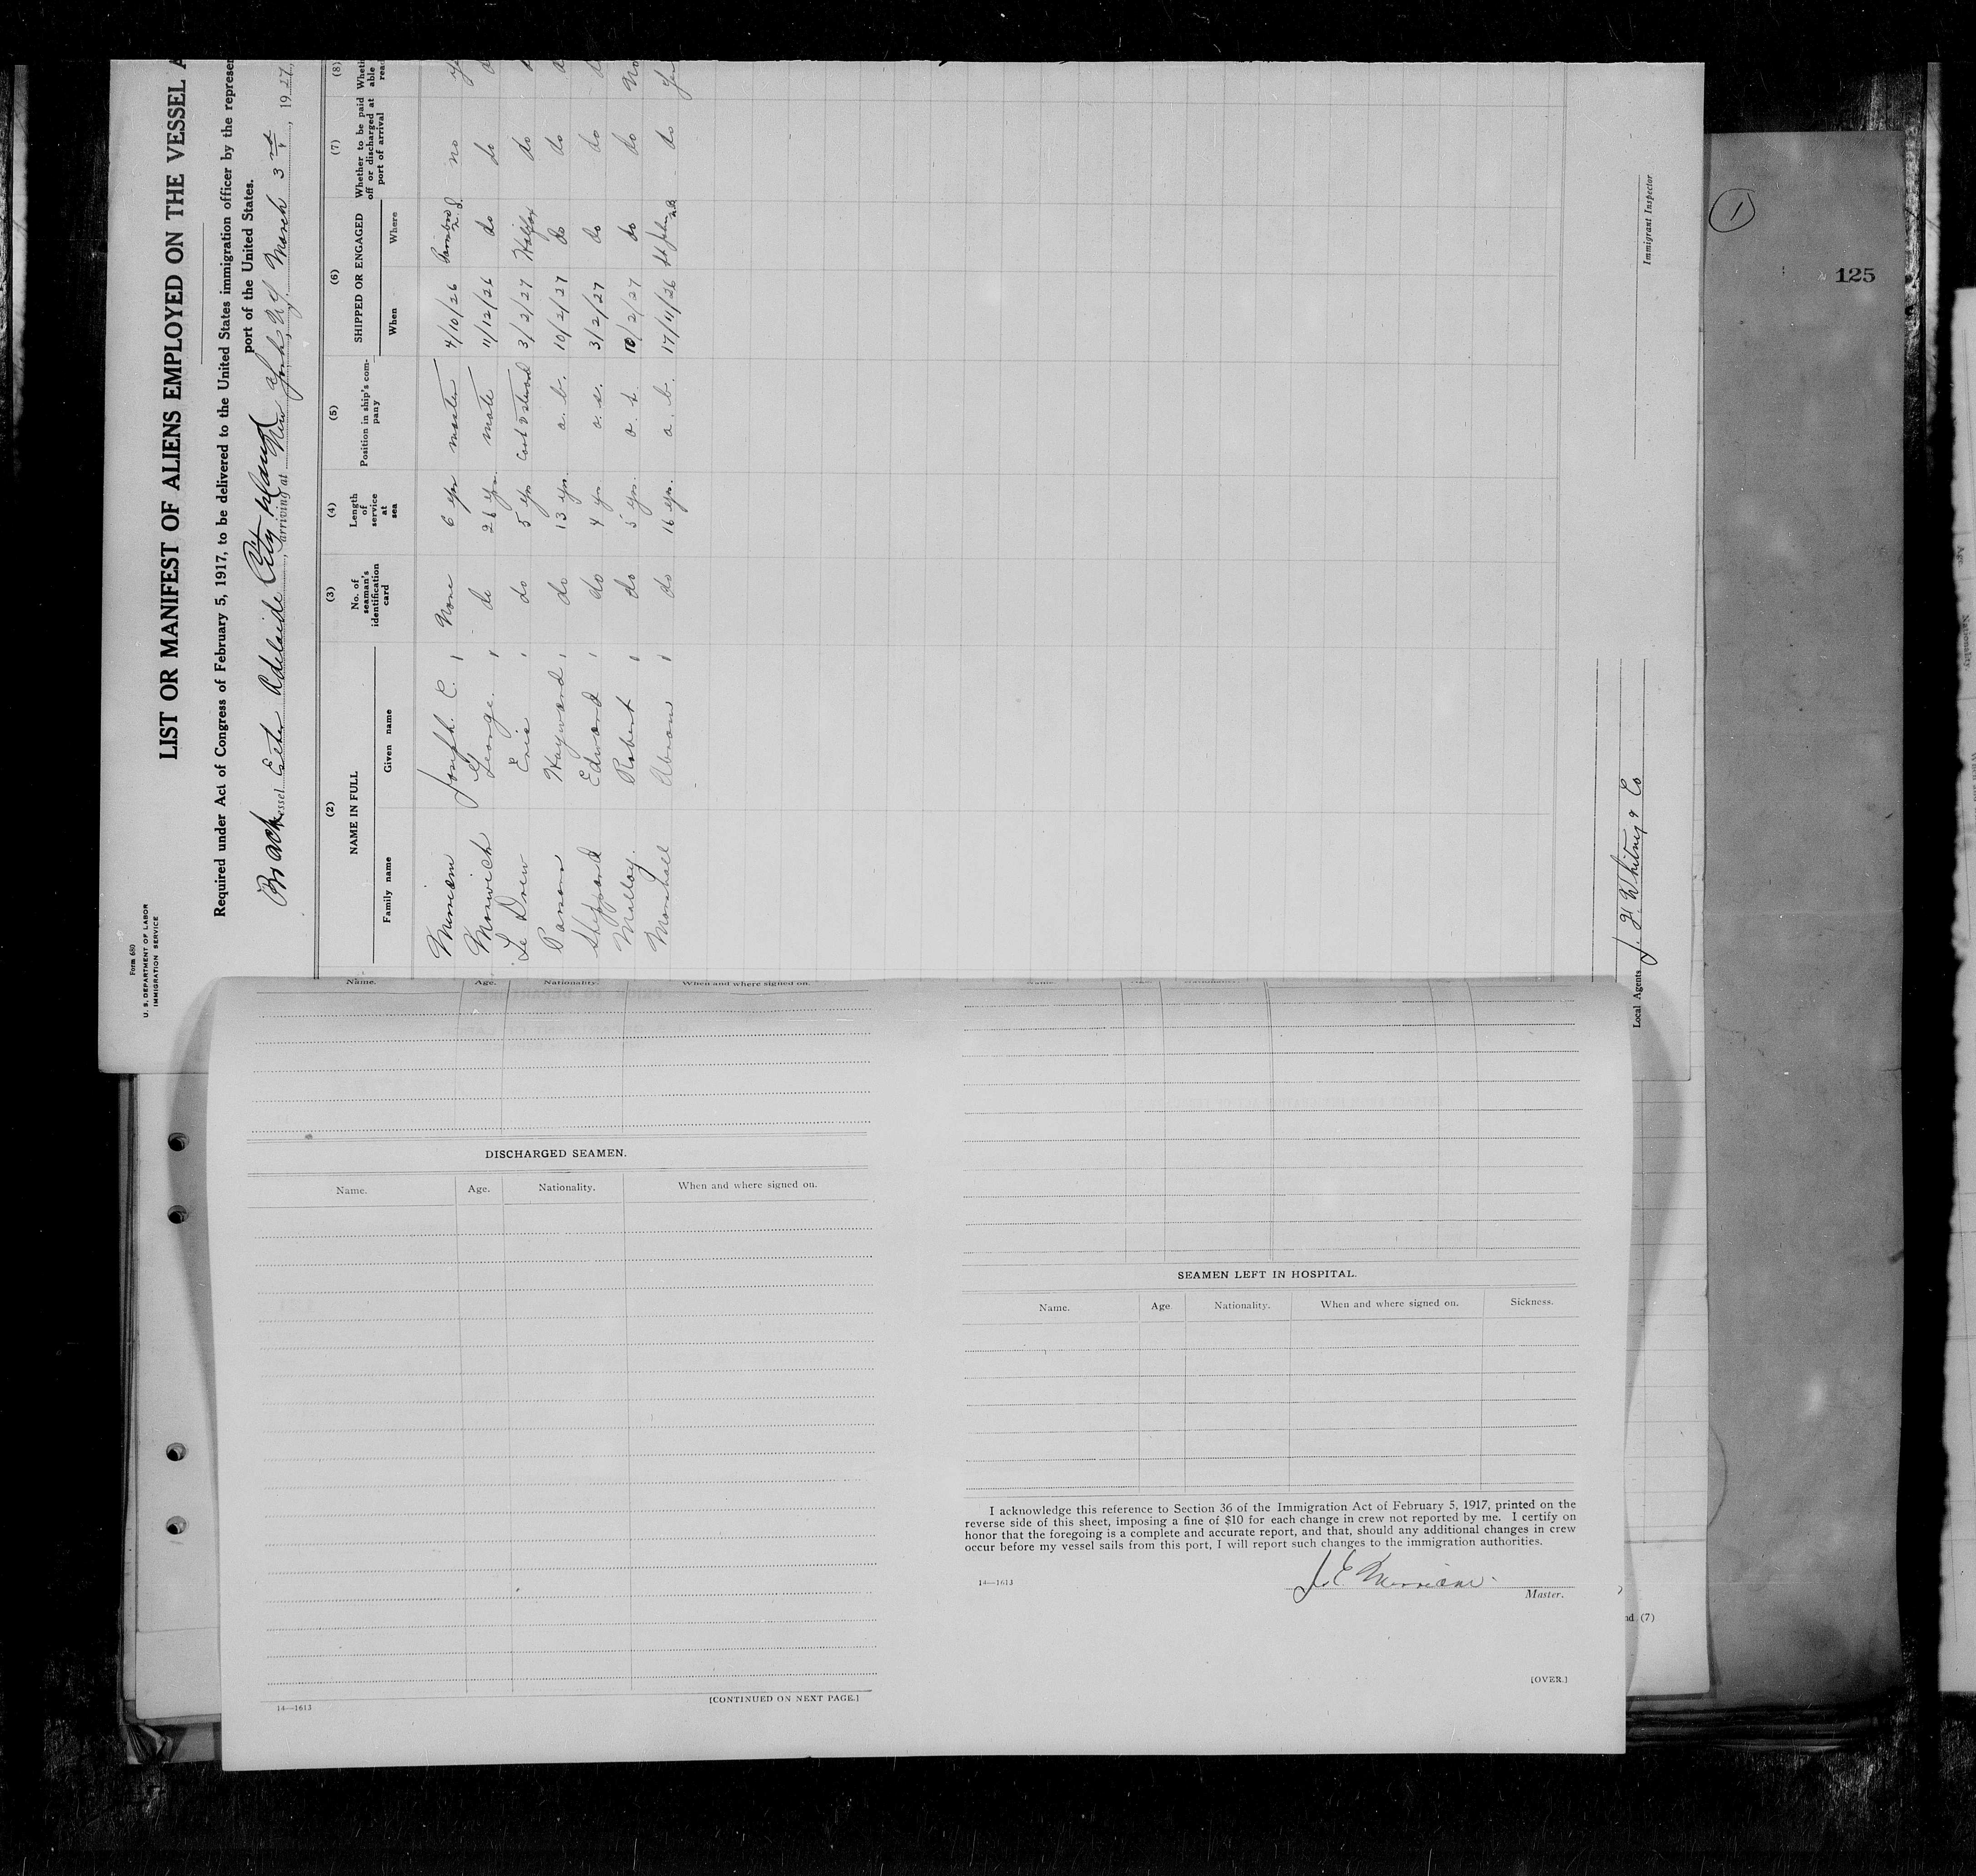 Form 680
U. S. DEPARTMENT OF LABOR
IMMIGRATION SERVICE
LIST OR MANIFEST OF ALIENS EMPLOYED ON THE VESSEL A
Required under Act of Congress of February 5, 1917, to be delivered to the United States immigration officer by the represen
port of the United States.
Vessel Esther Adelaide, arriving at New York, N.Y. March 3rd, 1927
(2) (3) (4) (5) (6) (7) (8)
NAME IN FULL No. of seaman's identification card Length of service at sea Position in ship's company SHIPPED OR ENGAGED Whether to be paid off or discharged at port of arrival
Family name Given name When Where
Merriam Joseph. E. None 6 yrs master 4/10/26 no
George. do 26 yrs. mate 11/12/26 do do
Le Drew Eric do 5 yrs Cook & steward 3/2/27 Halifax do
Parsons Hayward do 13 yrs. a. b. 10/2/27 do do
Sheppard Edward do 4 yrs o. s. 3/2/27 do do
Malloy. Robert do 5 yrs. o. s. 10/2/27 do do No
Marshall Abram do 16 yrs. a. b. 17/11/26 St John NB do
Immigrant Inspector
Local Agents J. F. Whitney & Co
1
125
Name. Age. Nationality. When and where signed on.
DISCHARGED SEAMEN.
Name. Age. Nationality. When and where signed on.
14—1613
[CONTINUED ON NEXT PAGE.]
SEAMEN LEFT IN HOSPITAL.
Name. Age. Nationality. When and where signed on. Sickness.
I acknowledge this reference to Section 36 of the Immigration Act of February 5, 1917, printed on the
reverse side of this sheet, imposing a fine of $10 for each change in crew not reported by me. I certify on
honor that the foregoing is a complete and accurate report, and that, should any additional changes in crew
occur before my vessel sails from this port, I will report such changes to the immigration authorities.
J. E. Merriam
14—1613
Master.
nd (7)
[OVER.]